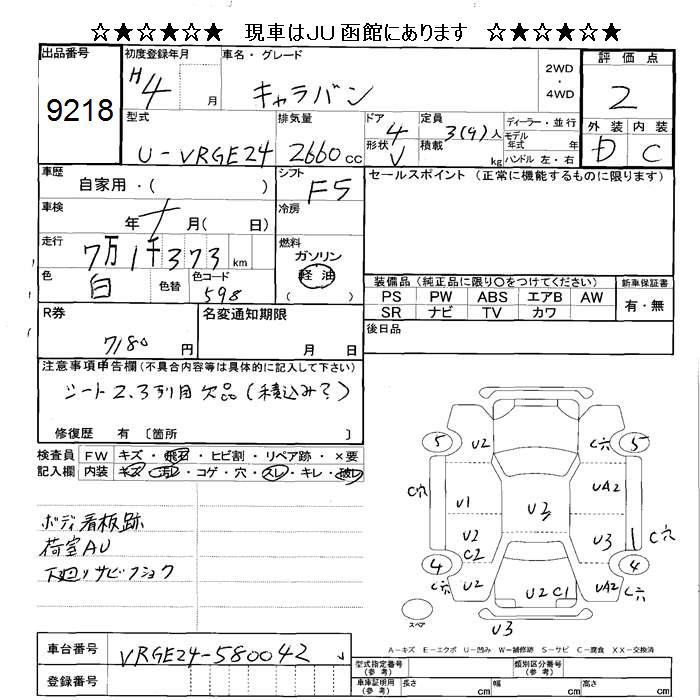 ☆★☆★☆★ 現車はJU函館にあります ☆★☆★☆★
出品番号 9218
初度登録年月 H4 月
車名・グレード キャラバン
2WD・4WD
評価点 2
外装 D 内装 C
型式 U-VRGE24
排気量 2660 cc
ドア 4
形状 V
定員 3(9)人
積載 kg
ディーラー・並行
モデル年式 年
ハンドル 左・右
車歴 自家用・( )
シフト F5
セールスポイント (正常に機能するものに限ります)
車検 年 月( 日)
冷房
走行 7万1千373 km
燃料 ガソリン 軽油 ( )
色 白 色替 色コード 598
装備品(純正品に限り○をつけてください)
PS PW ABS エアB AW
SR ナビ TV カワ
新車保証書 有・無
後日品
R券 7180 円
名変通知期限 月 日
注意事項申告欄(不具合内容等は具体的に記入して下さい)
シート2.3列目欠品(積込み?)
修復歴 有 〔箇所 〕
検査員記入欄 FW キズ・飛石・ヒビ割・リペア跡・×要
内装 キズ・汚レ・コゲ・穴・スレ・キレ・破レ
ボディ看板跡
荷室AU
下廻りサビフショク
5 U2 C穴 5
C穴 U1 UA2
U2 U3 U3 C穴
C2
4 U2 U2 C1 UA2 C穴 4
C穴
スペア U3
A-キズ E-エクボ U-凹み W-補修跡 S-サビ C-腐食 XX-交換済
車台番号 VRGE24-580042
登録番号
型式指定番号(参考) 類別区分番号(参考)
車庫証明用(参考) 長さ cm 幅 cm 高さ cm